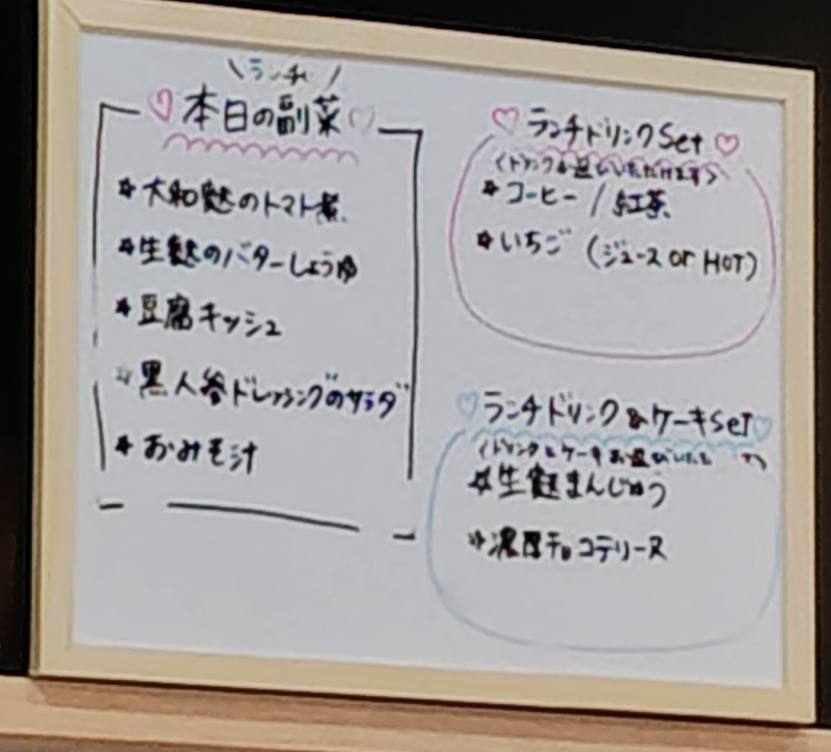 ランチ
本日の副菜
大和麩のトマト煮
生麩のバターしょうゆ
豆腐キッシュ
黒人参ドレッシングのサラダ
おみそ汁
ランチドリンクSet
(ドリンクお選びいただけます)
コーヒー / 紅茶
いちご (ジュース or HOT)
ランチドリンク&ケーキSet
(ドリンクとケーキお選びいただ
生麩まんじゅう
濃厚チョコテリーヌ